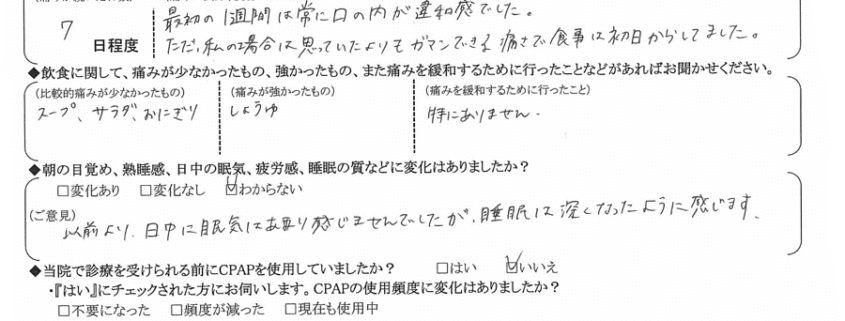 最初の1週間は常に口の内が違和感でした。
7
日程度
ただ、私の場合は思っていたよりもガマンできる痛さで食事は初日からしてました。
◆飲食に関して、痛みが少なかったもの、強かったもの、また痛みを緩和するために行ったことなどがあればお聞かせください。
(比較的痛みが少なかったもの) (痛みが強かったもの) (痛みを緩和するために行ったこと)
スープ、サラダ、おにぎり しょうゆ 特にありません。
◆朝の目覚め、熟睡感、日中の眠気、疲労感、睡眠の質などに変化はありましたか?
□変化あり □変化なし ☑わからない
(ご意見)
以前より、日中に眠気はあまり感じませんでしたが、睡眠は深くなったように感じます。
◆当院で診療を受けられる前にCPAPを使用していましたか? □はい ☑いいえ
・『はい』にチェックされた方にお伺いします。CPAPの使用頻度に変化はありましたか?
□不要になった □頻度が減った □現在も使用中